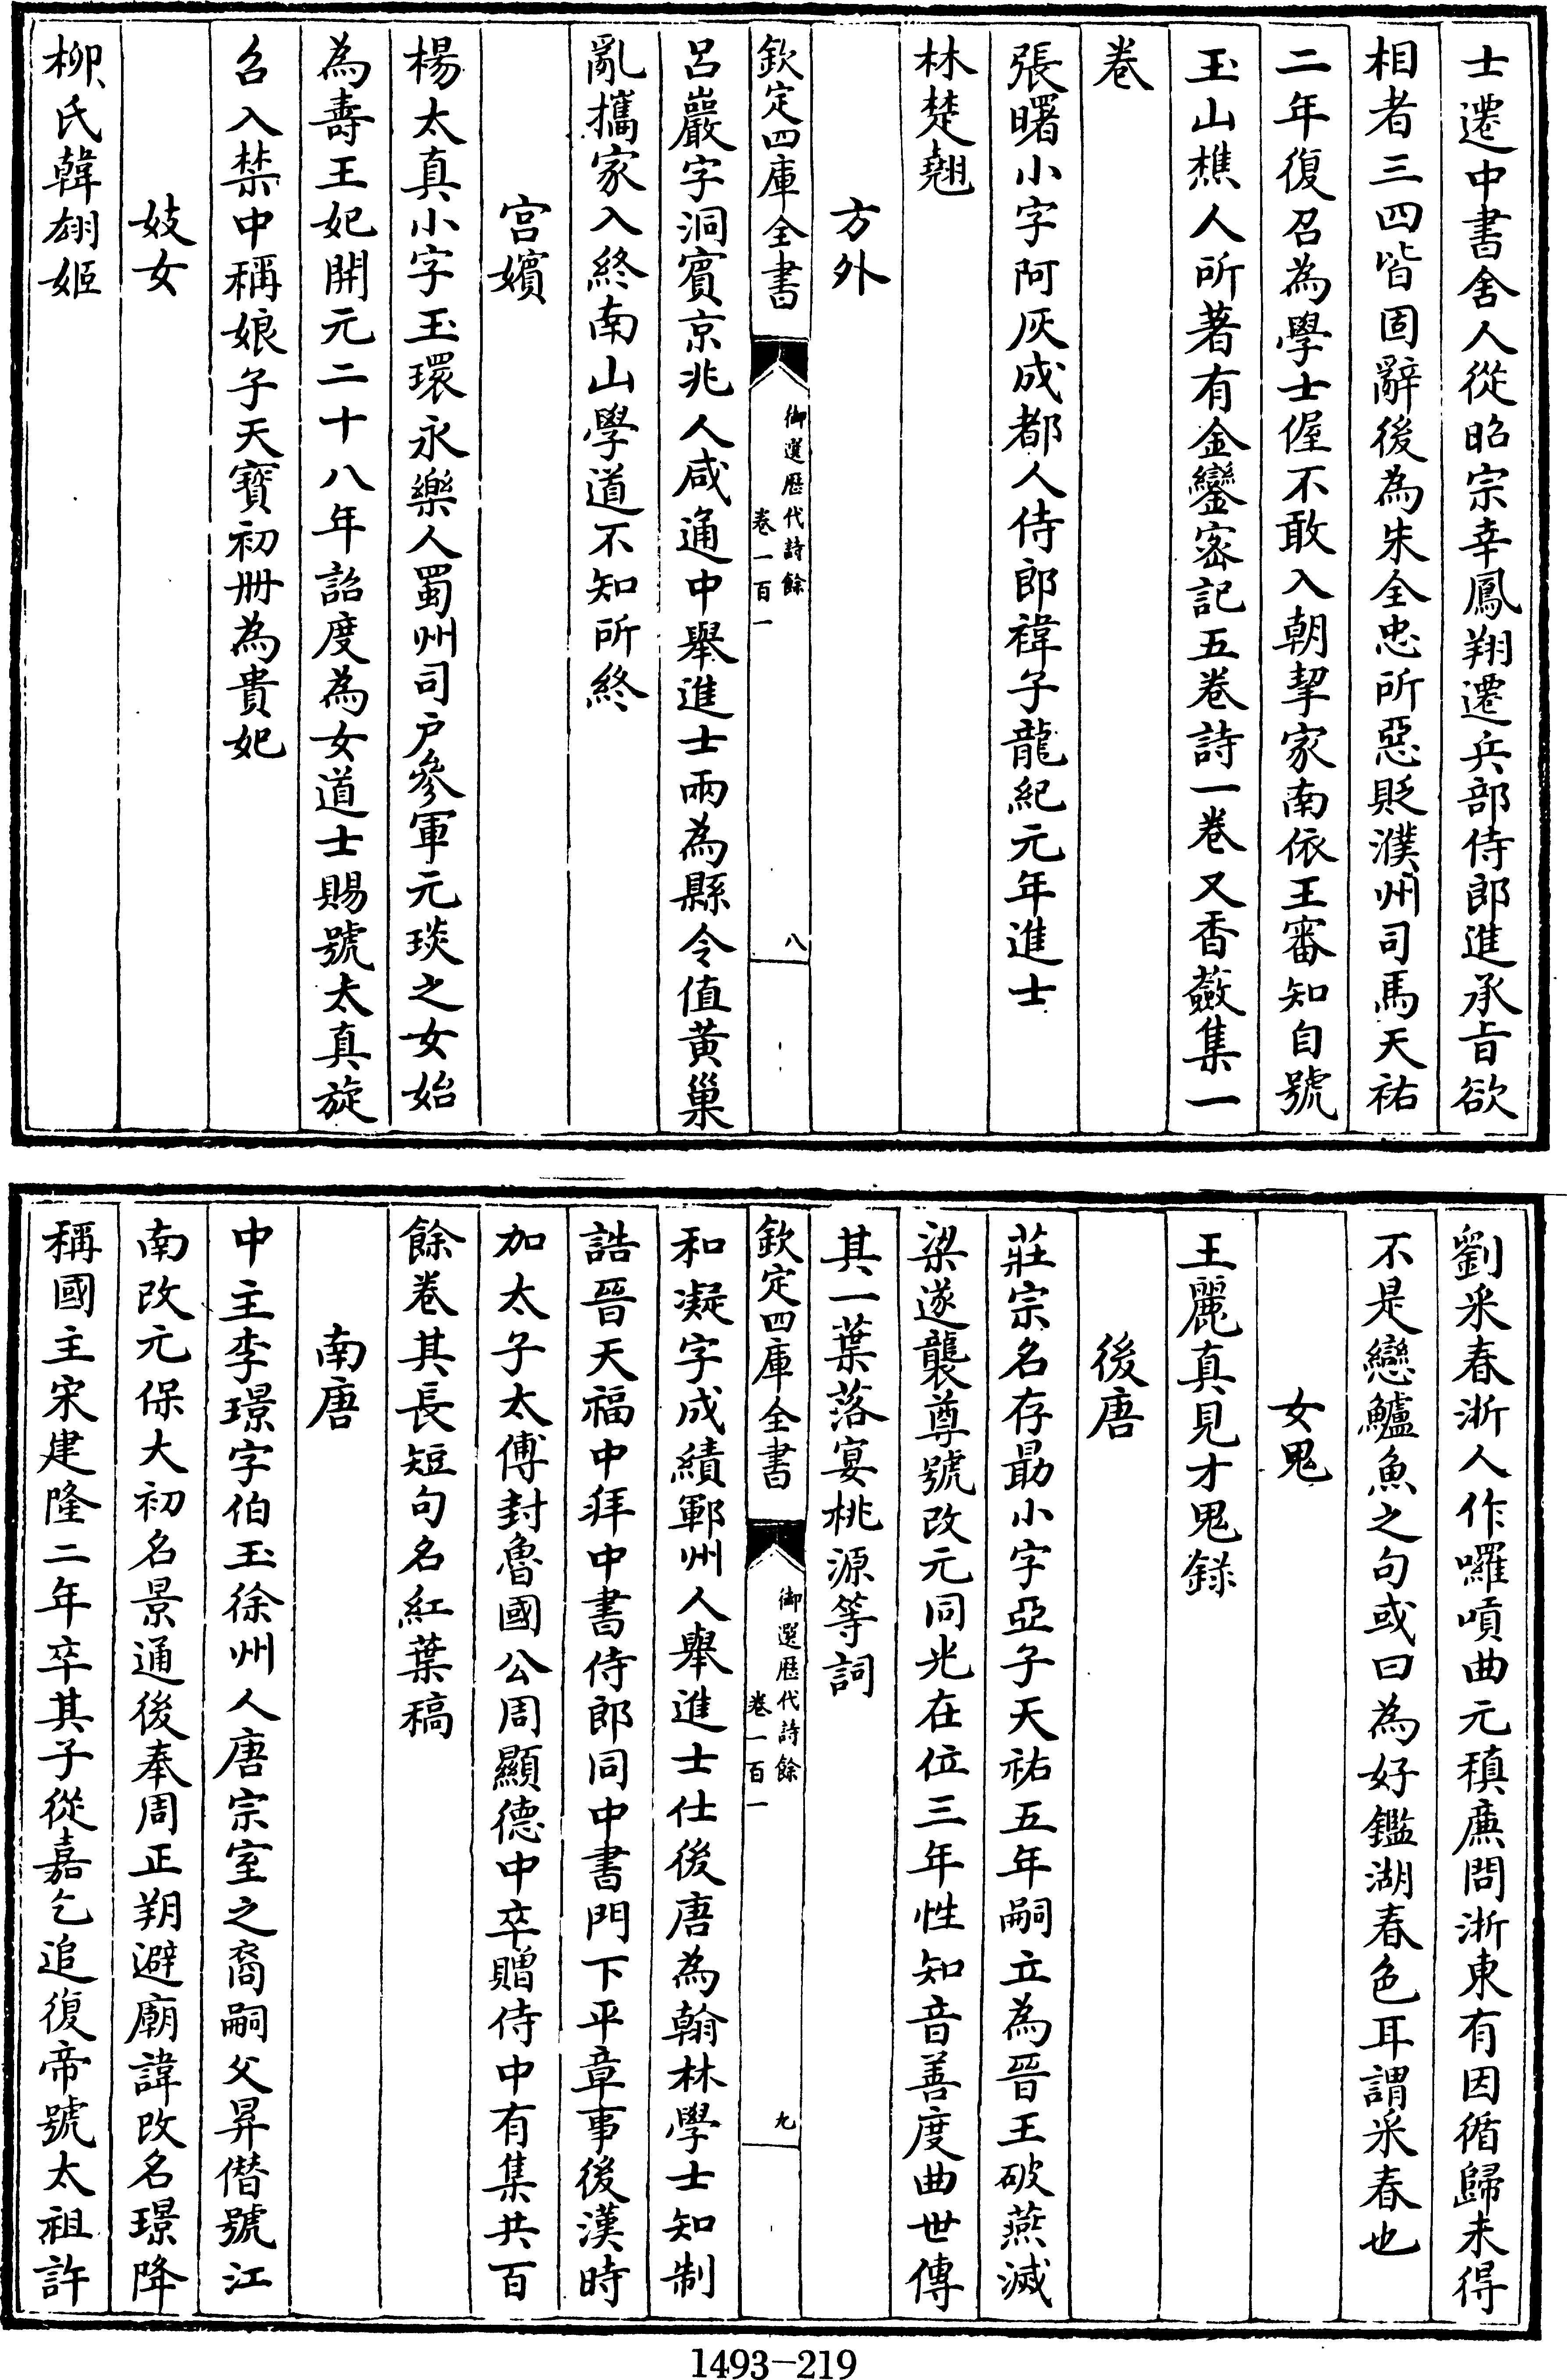 士遷中書舍人從昭宗幸鳳翔遷兵部侍郎進承㫖欲
相者三四皆固辭後為朱全忠所惡貶濮州司馬天祐
二年復召為學士偓不敢入朝挈家南依王審知自號
玉山樵人所著有金鑾密記五卷詩一卷又香蘞集一
卷
張曙小字阿灰成都人侍郎禕子龍紀元年進士
林楚翹
方外
欽定四庫全書
御選歷代詩餘
卷一百一
八
呂巖字洞賓京兆人咸通中舉進士兩為縣令值黃巢
亂攜家入終南山學道不知所終
宮嬪
楊太真小字玉環永樂人蜀州司户參軍元琰之女始
為壽王妃開元二十八年詔度為女道士賜號太真旋
召入禁中稱娘子天寶初冊為貴妃
妓女
柳氏韓翃姬
劉采春浙人作囉嗊曲元稹廉問浙東有因循歸未得
不是戀鱸魚之句或曰為好鑑湖春色耳謂采春也
女鬼
王麗真見才鬼錄
後唐
莊宗名存勗小字亞子天祐五年嗣立為晉王破燕滅
梁遂襲尊號改元同光在位三年性知音善度曲世傳
其一葉落宴桃源等詞
欽定四庫全書
御選歷代詩餘
卷一百一
九
和凝字成績鄆州人舉進士仕後唐為翰林學士知制
誥晉天福中拜中書侍郎同中書門下平章事後漢時
加太子太傅封魯國公周顯德中卒贈侍中有集共百
餘卷其長短句名紅葉稿
南唐
中主李璟字伯玉徐州人唐宗室之裔嗣父昇僭號江
南改元保大初名景通後奉周正朔避廟諱改名璟降
稱國主宋建隆二年卒其子從嘉乞追復帝號太祖許
1493—219